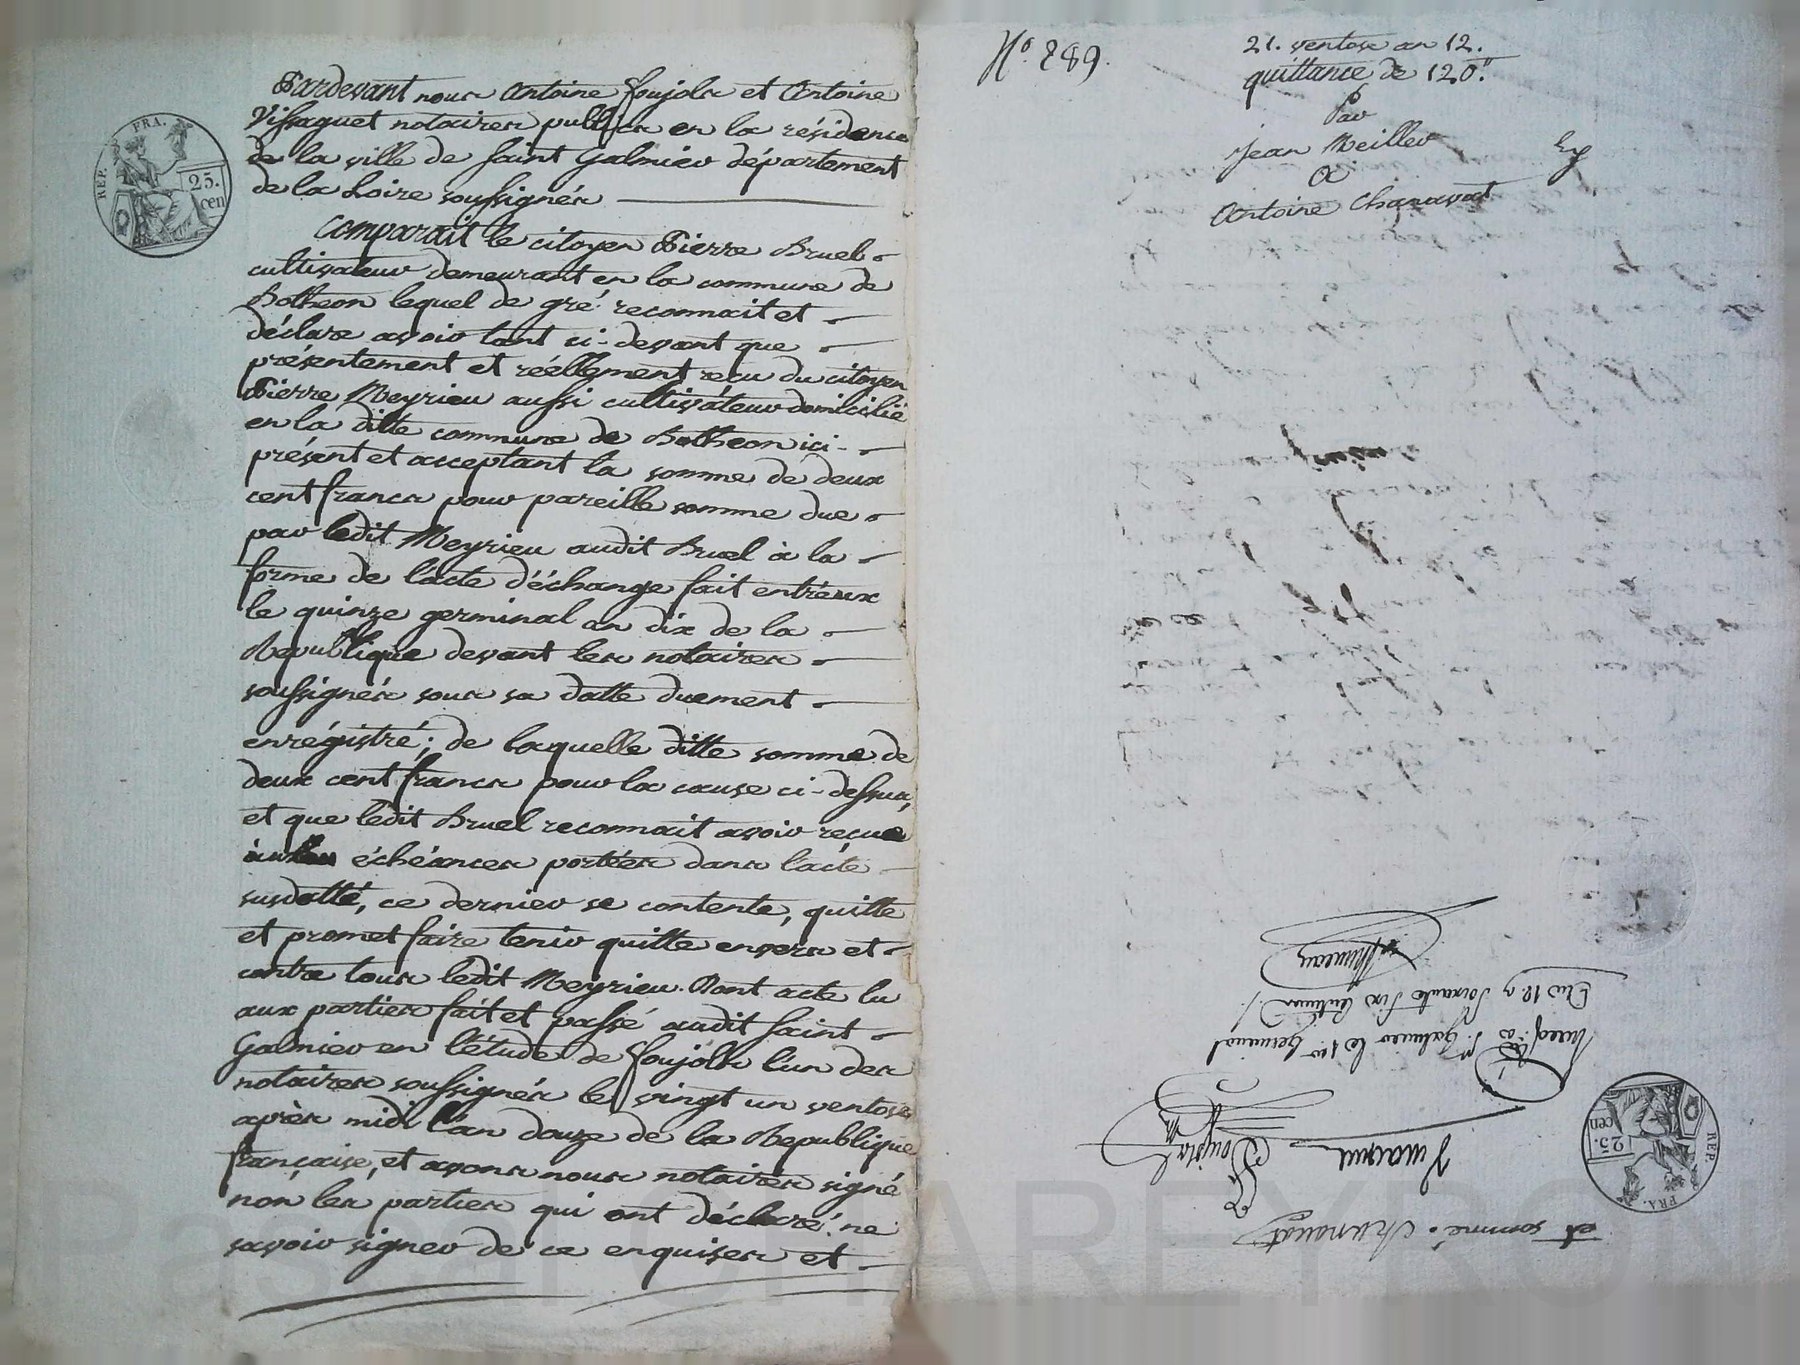 REP. FRA.
25.
cen
Pardevant nous Antoine Soujols et Antoine
Vissaguet notaires publics en la résidence
de la ville de Saint Galmier département
de la Loire soussignés
Comparait le citoyen Pierre Bruel
cultivateur demeurant en la commune de
Botheon lequel de gré reconnait et
déclare avoir tant ci-devant que
présentement et réellement reçu du citoyen
Pierre Meyrieu aussi cultivateur domicilié
en la ditte commune de Botheon ici-
présent et acceptant la somme de deux
cent francs pour pareille somme due
par ledit Meyrieu audit Bruel à la
forme de l'acte d'échange fait entréux
le quinze germinal an dix de la
Republique devant les notaires
soussignés sous sa datte duement
enrégistré; de laquelle ditte somme de
deux cent francs pour la cause ci-dessus,
et que ledit Bruel reconnait avoir reçue
échéances portées dans l'acte
susdatté, ce dernier se contente, quitte
et promet faire tenir quitte envers et
contre tous ledit Meyrieu. Dont acte lu
aux parties fait et passé audit Saint
Galmier en l'étude de Soujols l'un des
notaires soussignés le vingt un ventose
après midi l'an douze de la Republique
française, et avons nous notaires signé
non les parties qui ont déclaré ne
savoir signer de ce enquises et
N.° 289.
21. ventose an 12.
quittance de 120.
Par
Jean Meiller
a
Antoine Chanavat
et sommé.
REP. FRA.
25.
cen
Soujols
S. Galmier le 1er Germinal
an 12. r. Soixante Six Centimes
Pascal CHAREYRON